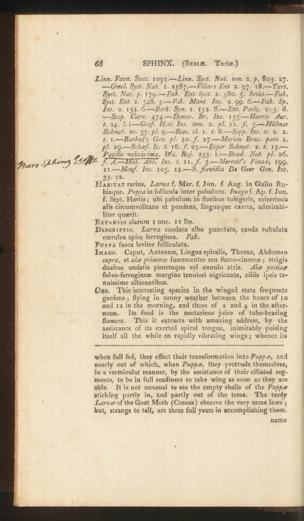 66 SPHINX. (Sesiæ. Tectæ.)
Linn. Faun. Suec. 1091.—Linn. Syst. Nat. tom. 2. p. 803. 27.
—Gmel. Syst. Nat. 1. 2387.—Villars Ent 2. 97. 18.—Turt.
Syst. Nat. p. 179.—Fab. Ent. Syst. 2. 380. 5. Sesia.—Fab.
Syst. Ent. 2. 548. 3.—Fab. Mant. Ins. 2. 99. 6.—Fab. Sp.
Ins. 2. 154. 6.—Berk. Syn. 1. 132. 8.—Ent. Paris. 2. 3. 6.
—Scop. Carn. 474.—Donov. Br. Ins. 155.—Harris Aur.
t. 24. l. i.—Geof. Hist. Ins. tom. 2. pl. 11. f. 5.—Hübner
Schmet. nr. 57. pl. 9.—Roes. cl. 1. t. 8.—Sepp. Ins. v. 2. 2.
t. 1.—Barbut's Gen. pl. 10. f. 27—Merian Eruc. pars 2.
pl. 29.—Schæf. Ic. t. 16. f. 23.—Esper Schmet. 2. t. 13.—
Papilio velocissima, &c. Bej. 133. 1.—Brad. Nat. pl. 26.
f. A.—Hist. Abr. Ins. t. 11. f. 5.—Merrett's Pinax, 199.
11—Mouf. Ins. 105. 12.—S. flavidia De Geer Gen. Ins.
33. 32.
Habitat rarius. Larva f. Mar. f. Jun. f Aug. in Galio Ru-
biaque. Puppa in folliculo inter pabulum. Imago f. Ap. f. Jun.
f. Sept. Hortis; ubi pabulum in floribus tubigeris, celerrimis
alis circumvolitans et pendens, linguaque exerta, admirabi-
liter quærit.
Expansio alarum 1 unc. 11 lin.
Descriptio. Larva caudata albo punctata, cauda subulata
cœrulea apice ferruginea. Fab.
Puppa fusca leviter folliculata.
Imago. Caput, Antennæ, Lingua spiralis, Thorax, Abdomen
supra, et alæ primores fuscescentes seu fusco-cinereæ; strigis
duabus undatis punctoque vel annulo atris. Alæ posticæ
fulvo-ferrugineæ margine tenuiori nigricante, ciliis ipsis te-
nuissime albicantibus.
Obs. This interesting species in the winged state frequents
gardens; flying in sunny weather between the hours of 10
and 12 in the morning, and those of 2 and 4 in the after-
noon. Its food is the nectarious juice of tube-bearing
flowers. This it extracts with amazing address, by the
assistance of its exerted spiral tongue, inimitably poising
itself all the while on rapidly vibrating wings; whence its
when full fed, they effect their transformation into Puppæ, and
nearly out of which, when Puppæ, they protrude themselves,
in a vermicular manner, by the assistance of their ciliated seg-
ments, to be in full readiness to take wing as soon as they are
able. It is not unusual to see the empty shells of the Puppæ
sticking partly in, and partly out of the trees. The tardy
Larvæ of the Goat Moth (Cossus) observe the very same laws;
but, strange to tell, are three full years in accomplishing them.
name